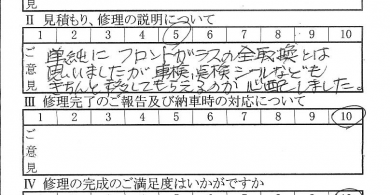 見
II 見積もり、修理の説明について
1 2 3 4 5 6 7 8 9 10
ご意見
単純にフロントガラスの全取換とは
思いましたが車検、点検シールなども
きちんと移してもらえるのか心配しました。
III 修理完了のご報告及び納車時の対応について
1 2 3 4 5 6 7 8 9 10
ご意見
IV 修理の完成のご満足度はいかがですか
1 2 3 4 5 6 7 8 9 10